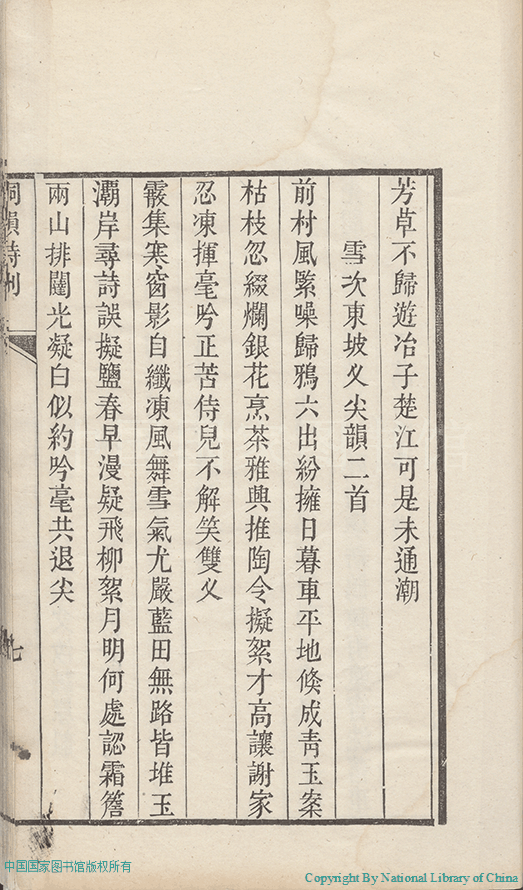 芳草不歸遊冶子楚江可是未通潮
雪次東坡乂尖韻二首
前村風緊噪歸鴉六出紛擁日暮車平地倐成靑玉案
枯枝忽綴爛銀花烹茶雅興推陶令擬絮才高讓謝家
忍凍揮毫吟正苦侍兒不解笑雙乂
霰集寒窗影自纖凍風舞雪氣尤嚴藍田無路皆堆玉
灞岸尋詩誤擬鹽春早漫疑飛柳絮月明何處認霜簷
兩山排闥光凝白似約吟毫共退尖
同韻詩刋
七
中国国家图书馆版权所有
Copyright By National Library of China